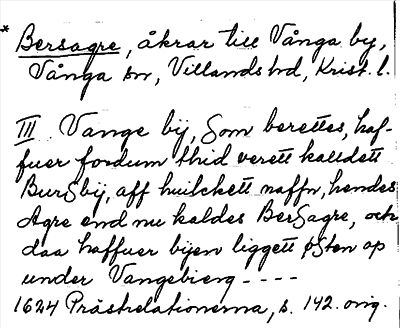 * Bersagre, åkrar till Vånga by,
Vånga sn, Villands hd, Krist. l.
III Vange bij, Som berettes, haf-
fuer fordum thid verett kalldett
BurSbij, aff huilckett naffn, hendes
Agre end nu kaldes BerSagre, och
daa haffuer bijen liggett østen op
under Vangebierg - - - -
1624 Prästrelationerna, s. 142. orig.